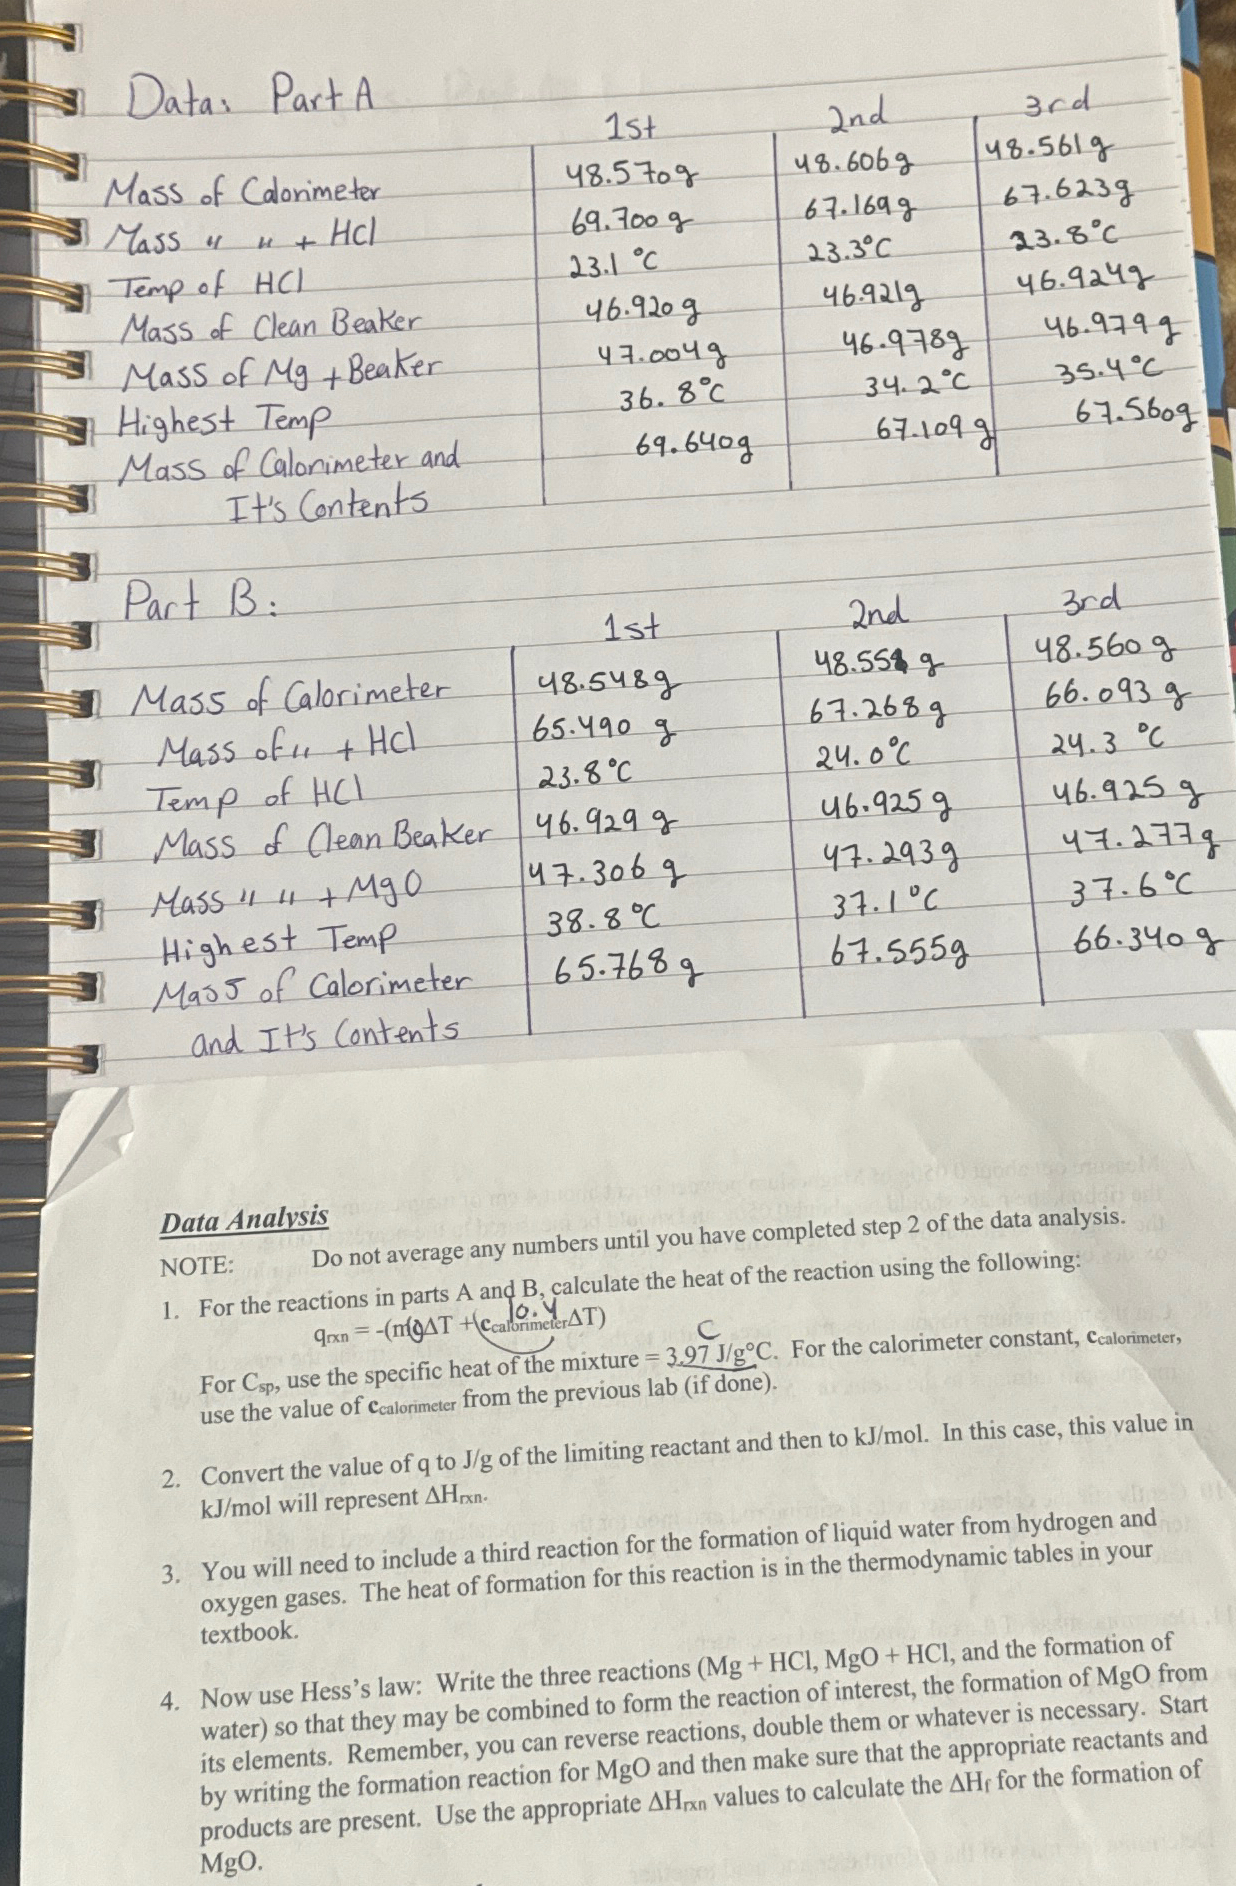 Data: Part A
1st 2nd 3rd
Mass of Calorimeter 48.570g 48.606g 48.561g
Mass " " + HCl 69.700g 67.169g 67.623g
Temp of HCl 23.1°C 23.3°C 23.8°C
Mass of Clean Beaker 46.920g 46.921g 46.924g
Mass of Mg + Beaker 47.004g 46.978g 46.979g
Highest Temp 36.8°C 34.2°C 35.4°C
Mass of Calorimeter and 69.640g 67.109g 67.560g
It's Contents
Part B:
1st 2nd 3rd
Mass of Calorimeter 48.548g g 48.560g
Mass of " + HCl 65.490 g 67.268g 66.093 g
Temp of HCl 23.8°C 24.0°C 24.3 °C
Mass of Clean Beaker 46.929 g 46.925g 46.925 g
Mass " " + MgO 47.306 g 47.293g 47.277g
Highest Temp 38.8°C 37.1°C 37.6°C
Mass of Calorimeter 65.768g 67.555g 66.340g
and It's Contents
Data Analysis
NOTE: Do not average any numbers until you have completed step 2 of the data analysis.
1. For the reactions in parts A and B, calculate the heat of the reaction using the following:
10.4
qrxn = -(m ΔT + (ccalorimeterΔT)
C
For Csp, use the specific heat of the mixture = 3.97 J/g°C. For the calorimeter constant, ccalorimeter,
use the value of ccalorimeter from the previous lab (if done).
2. Convert the value of q to J/g of the limiting reactant and then to kJ/mol. In this case, this value in
kJ/mol will represent ΔHrxn.
3. You will need to include a third reaction for the formation of liquid water from hydrogen and
oxygen gases. The heat of formation for this reaction is in the thermodynamic tables in your
textbook.
4. Now use Hess's law: Write the three reactions (Mg + HCl, MgO + HCl, and the formation of
water) so that they may be combined to form the reaction of interest, the formation of MgO from
its elements. Remember, you can reverse reactions, double them or whatever is necessary. Start
by writing the formation reaction for MgO and then make sure that the appropriate reactants and
products are present. Use the appropriate ΔHrxn values to calculate the ΔHf for the formation of
MgO.